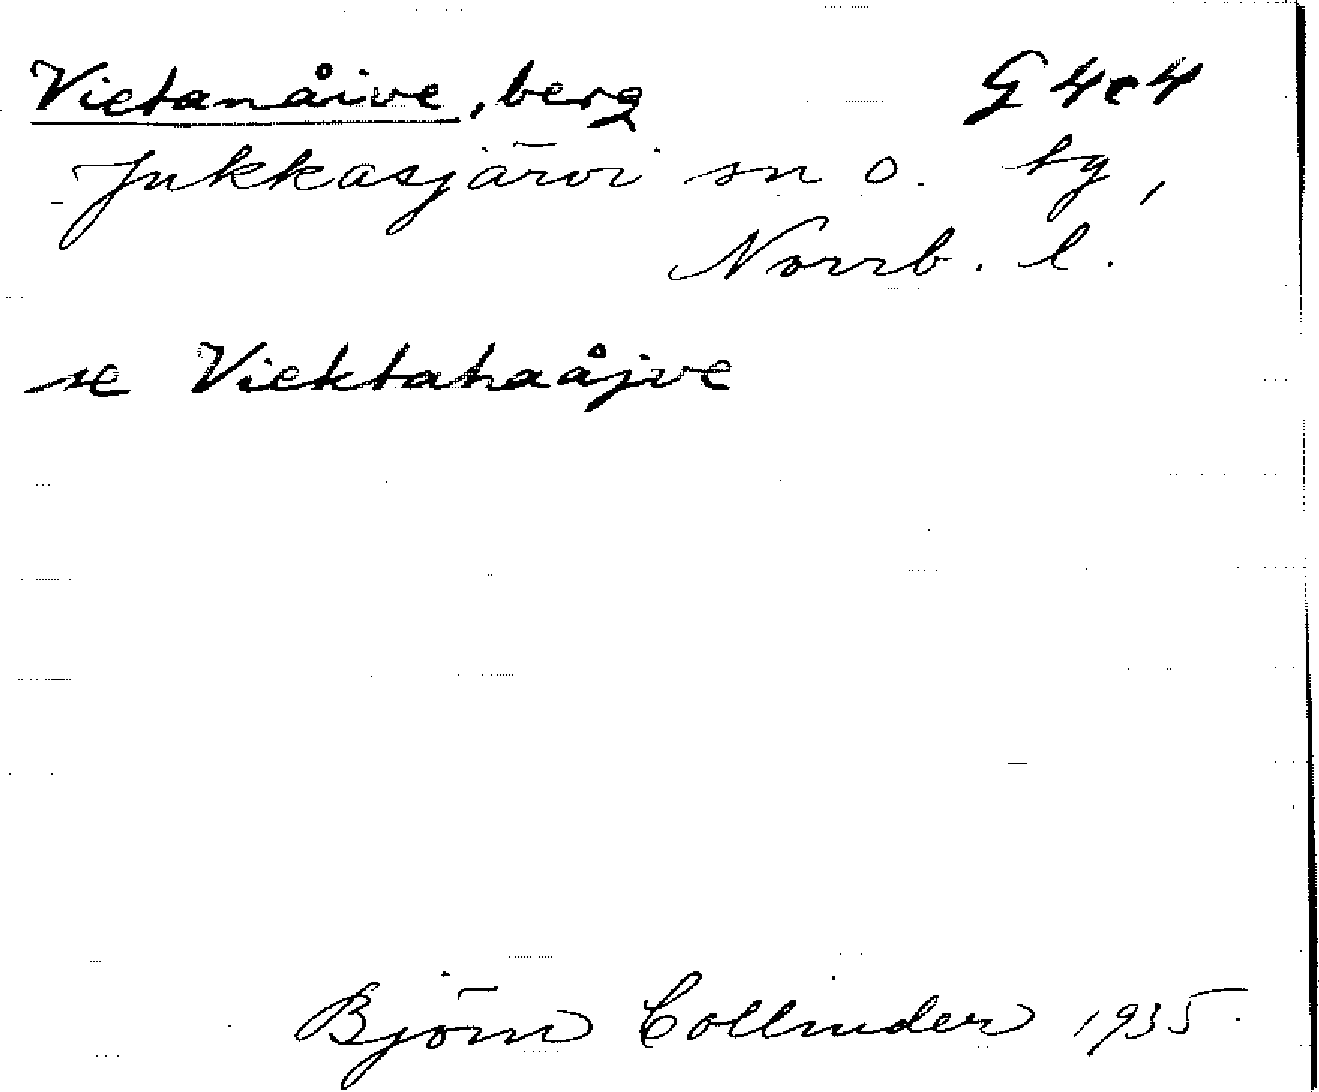 Vietanåive, berg G 4c4
Jukkasjärvi sn o. tg,
Norrb. l.
se Viektahaåjve
Björn Collinder 1935.